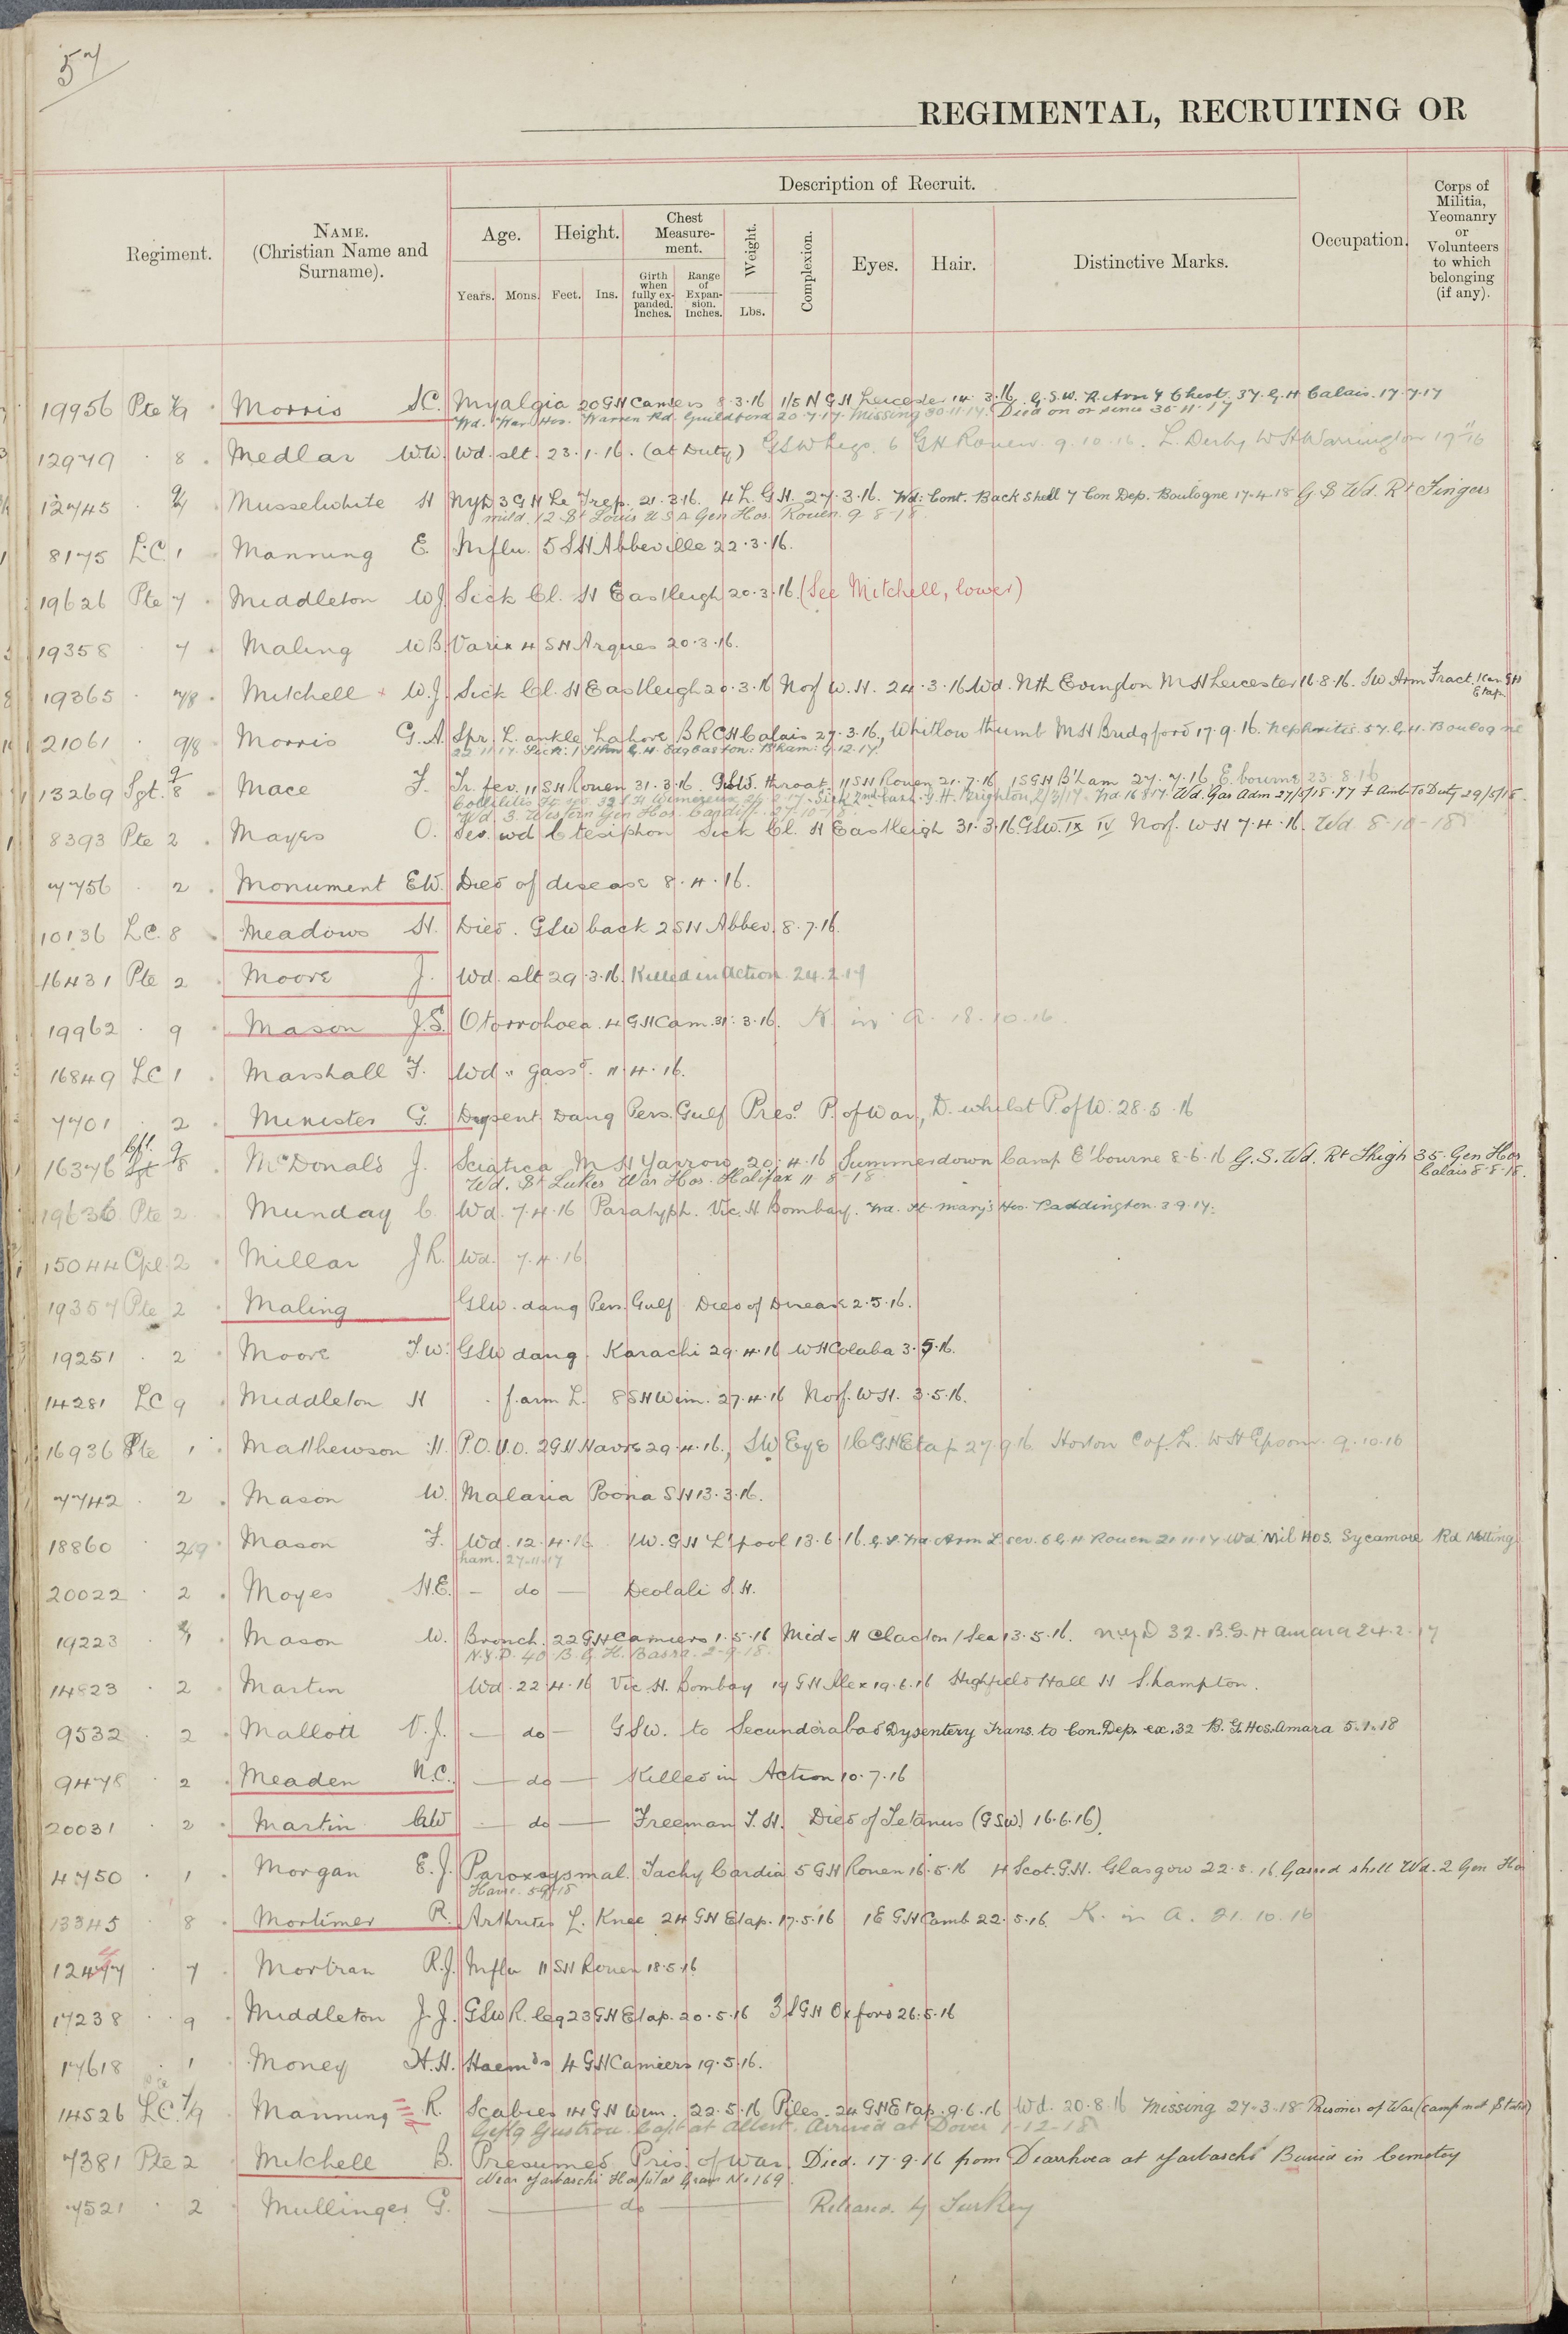 57
REGIMENTAL, RECRUITING OR
Regiment.
NAME.
(Christian Name and
Surname).
Description of Recruit.
Age.
Years.
Mons.
Height.
Feet.
Ins.
Chest
Measure-
ment.
Girth
when
fully ex-
panded.
Inches.
Range
of
Expan-
sion.
Inches.
Weight.
Lbs.
Complexion.
Eyes.
Hair.
Distinctive Marks.
Occupation.
Corps of
Militia,
Yeomanry
or
Volunteers
to which
belonging
(if any).
19956 Pte 7/9 Morris SC. Myalgia 20 GH Camiers 8.3.16 1/5 N GH Leicester 14.3.16. G.S.W. R. Arm & Chest. 37. G.H Calais. 17.7.17
Wd. War Hos. Warren Rd. Guildford 20.7.17. Missing 30.11.17. Died on or since 30.11.17
12979 8 Medlar W.W. Wd. slt. 23.1.16. (at Duty) GSW Legs. 6 GH Rouen. 9.10.16. L. Derby W H Warrington 17"16
12745 Musselwhite H NYD 3 GH Le Trep. 21.3.16. 4 L. GH. 27.3.16. Wd: Cont. Back Shell 7 Con Dep. Boulogne 17-4-18 G S Wd. Rt Fingers
mild. 12 St Louis U S A Gen Hos. Rouen. 9-8-18.
8175 L.C. 1 Manning E. Influ. 5 SH Abbeville 22.3.16.
19626 Pte 7 Middleton W.J. Sick Cl. H Eastleigh 20.3.16. (See Mitchell, lower)
19358 7 Maling W.B. Varix 4 SH Arques 20.3.16.
19365 7/8 Mitchell W.J. Sick Cl. H Eastleigh 20.3.16 Norf W.H. 24.3.16 Wd. Nth Evington M H Leicester 16.8.16. SW Arm Fract. 1 Can GH
Etap.
21061 9/8 Morris G.A. Spr. L. ankle Lahore B R C H Calais 27.3.16, Whitlow thumb M H Bridgford 17.9.16. Nephritis. 54. G.H. Boulogne
22.11.17. Sick: 1 SHn G.H. Edgbaston: B'ham: 9.12.17.
13269 Sgt. 9/8 Mace F. Tr. fev. 11 SH Rouen 31.3.16. GSW. throat. 11 SH Rouen 21.7.16 1 SGH B'ham 27.7.16 E.bourne 23.8.16
Wd. Gas Adm 27/5/18. 47 F Amb To Duty 29/5/18.
Wd. 3. Western Gen Hos. Cardiff. 27.10-18.
8393 Pte 2 Mayes O. Sev. wd Ctesiphon Sick Cl. H Eastleigh 31.3.16 GSW. IX IV Norf. W H 7.4.16. Wd. 8-10-18
7756 2 Monument E.W. Died of disease 8.4.16.
10136 L.C. 8 Meadows H. Died. GSW back 2 SH Abbev. 8.7.16.
16431 Pte 2 Moore J. Wd. slt 29.3.16. Killed in Action 24.2.17
19962 9 Mason J.S. Otorrohoea. 4 GH Cam. 31.3.16. K. in A. 18.10.16.
16849 LC 1 Marshall F. Wd " gassd. 11.4.16.
7701 2 Minister G. Dysent. Dang Pers. Gulf Presd. P. of War, D. whilst P of W. 28.5.16
16376 9/8 McDonald J. Sciatica M H Yarrow 20.4.16 Summerdown Camp E'bourne 8.6.16 G.S. Wd. Rt Thigh 35. Gen Hos
Calais 8-8-18.
Wd. St Lukes War Hos. Halifax 11-8-18
19636 Pte 2 Munday C. Wd. 7.4.16 Paratyph. Vic. H Bombay. Wd. St Mary's Hos. Paddington. 3.9.17.
15044 Cpl 2 Millar J.R. Wd. 7.4.16
19357 Pte 2 Maling GSW. dang Pers. Gulf Died of Disease 2.5.16.
19251 2 Moore F.W. GSW dang. Karachi 29.4.16 W H Colaba 3.5.16.
14281 LC 9 Middleton H " f. arm L. 8 SH Wim. 27.4.16 Norf. W H. 3.5.16.
16936 Pte 1 Matthewson H. P.O.U.O. 2 GH Havre 29.4.16., SW Eye 1 C GH Etap 27.9.16. Horton Co. of L. W H Epsom. 9.10.16
7742 2 Mason W. Malaria Poona SH 13.3.16.
18860 2/9 Mason F. Wd. 12.4.16 1 W. GH L'pool 13.6.16. G.S. Wd Arm L sev. 6 G.H Rouen 21.11.17 Wd Mil Hos. Sycamore Rd Notting
ham. 27.11.17
20022 2 Moyes H.E. — do — Deolali S.H.
19223 Mason W. Bronch. 22 GH Camiers 1.5.16 Midx H Clacton/Sea 13.5.16. NYD 32. B.G.H Amara 24.2.17
N.Y.D. 40 B.G.H. Basra. 2-9-18.
14823 2 Martin Wd. 22.4.16 Vic. H. Bombay 19 GH Alex 19.6.16 Highfield Hall H S.hampton.
9532 2 Mallott V.J. — do — GSW. to Secunderabad Dysentery Trans. to Con. Dep. ex. 32 B. G. Hos. Amara 5.1.18
9478 2 Meaden N.C. — do — Killed in Action 10.7.16
20031 2 Martin G.W — do — Freeman T. H. Died of Tetanus (GSW) 16.6.16)
4750 1 Morgan E.J. Paroxysmal Tachy Cardia 5 GH Rouen 16.5.16 4 Scot. G.H. Glasgow 22.5.16. Gassed shell Wd. 2 Gen Hos
Havre. 5-9-18
13345 8 Mortimer R. Arthritis L. Knee 24 GH Etap. 17.5.16 1 E GH Camb 22.5.16. K. in A. 21.10.16
12477 7 Mortran R.J. Influ 11 SH Rouen 18.5.16
17238 9 Middleton J.J. GSW R. leg 23 GH Etap. 20.5.16 3 SGH Oxford 26.5.16
17618 1 Money H.H. Haemds 4 GH Camiers 19.5.16.
14526 LC. 7/9 Manning R. Scabies 14 GH Wim. 22.5.16 Piles. 24 GH Etap. 9.6.16 Wd. 20.8.16 Missing 27-3-18 Prisoner of War (camp not stated)
Gustrow. Capt at Albert. Arrived at Dover 1-12-18
7381 Pte 2 Mitchell B. Presumed Pris. of War. Died. 17-9-16 from Diarrhoea at Yarbaschi Buried in Cemetery
Near Yarbaschi Hospital Grave No 169.
7521 2 Mullinger G. — do — Released by Turkey